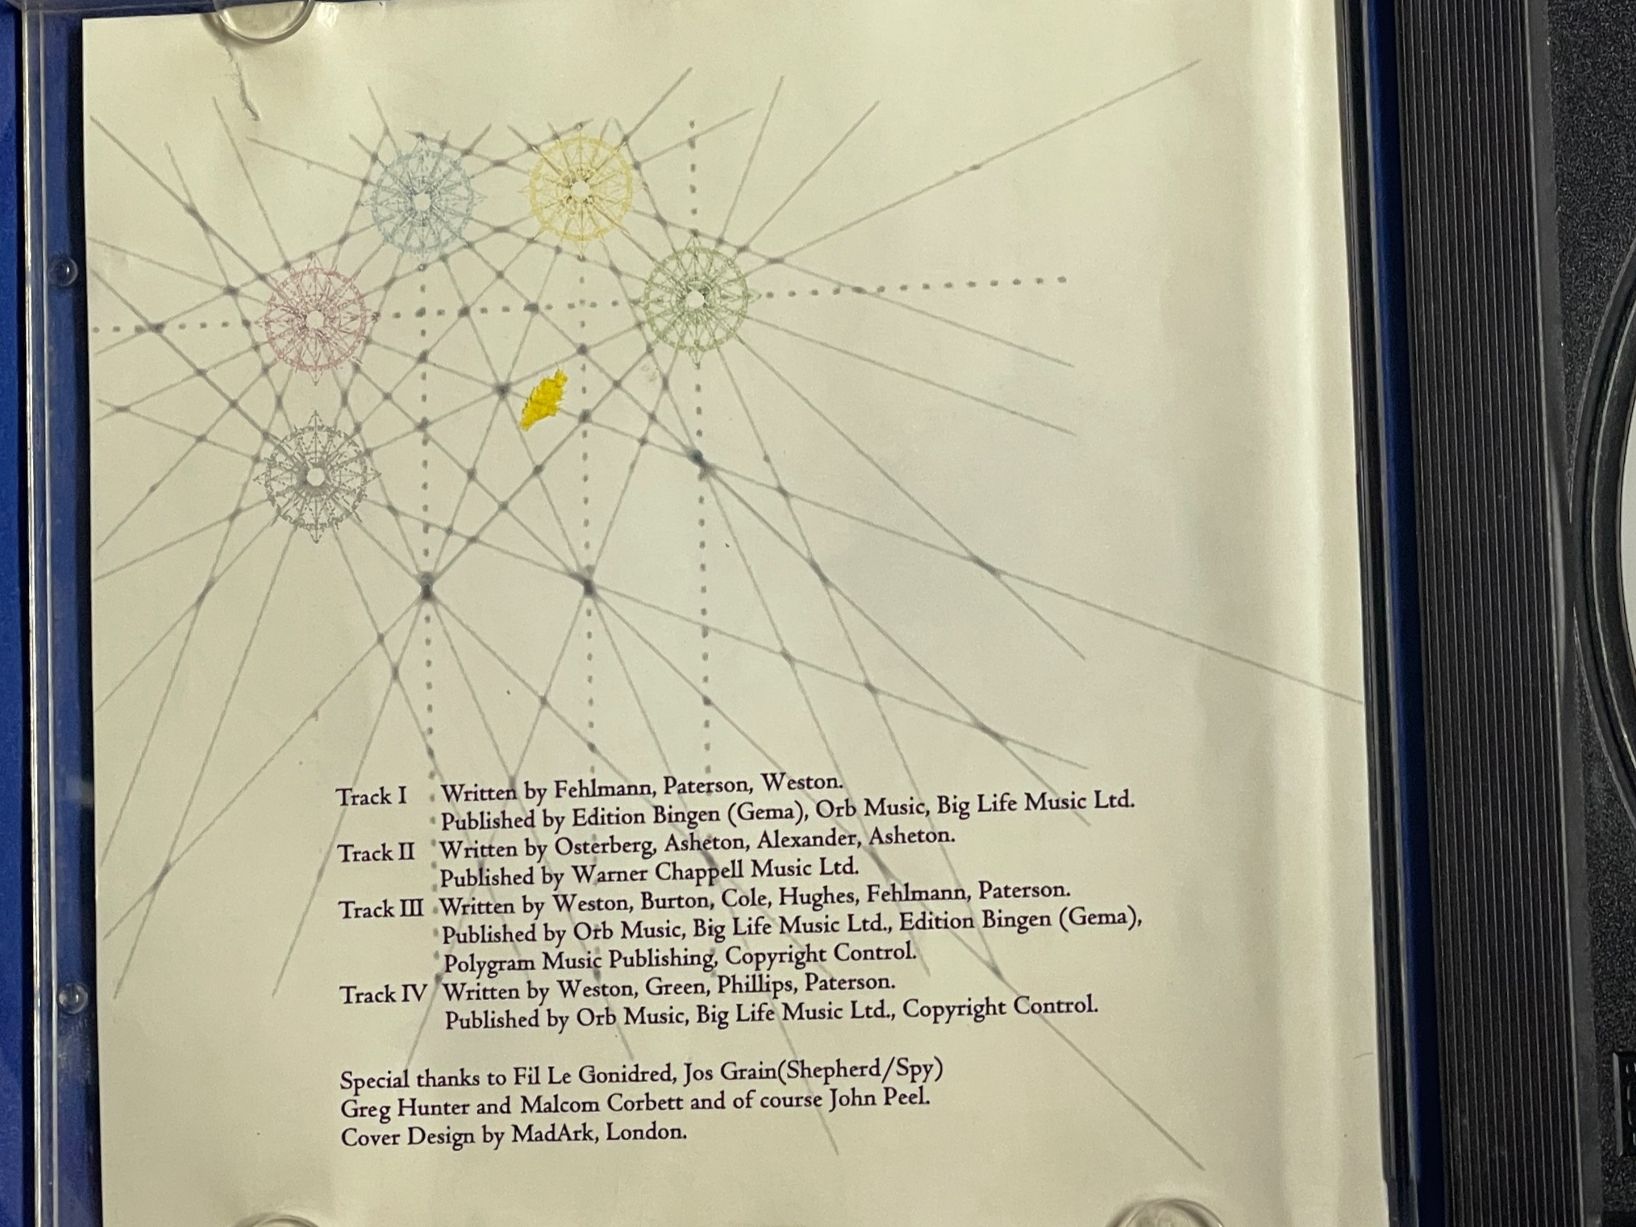 Track I Written by Fehlmann, Paterson, Weston.
Published by Edition Bingen (Gema), Orb Music, Big Life Music Ltd.
Track II Written by Osterberg, Asheton, Alexander, Asheton.
Published by Warner Chappell Music Ltd.
Track III Written by Weston, Burton, Cole, Hughes, Fehlmann, Paterson.
Published by Orb Music, Big Life Music Ltd., Edition Bingen (Gema),
Polygram Music Publishing, Copyright Control.
Track IV Written by Weston, Green, Phillips, Paterson.
Published by Orb Music, Big Life Music Ltd., Copyright Control.
Special thanks to Fil Le Gonidred, Jos Grain(Shepherd/Spy)
Greg Hunter and Malcom Corbett and of course John Peel.
Cover Design by MadArk, London.